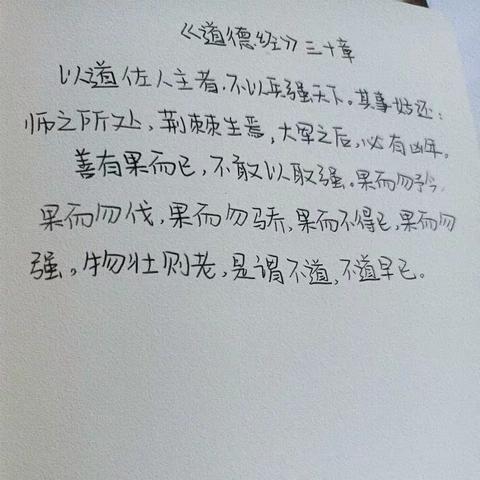 《道德经》三十章
以道佐人主者，不以兵强天下。其事好还：
师之所处，荆棘生焉，大军之后，必有凶年。
善有果而已，不敢以取强。果而勿矜，
果而勿伐，果而勿骄，果而不得已，果而勿
强。物壮则老，是谓不道，不道早已。